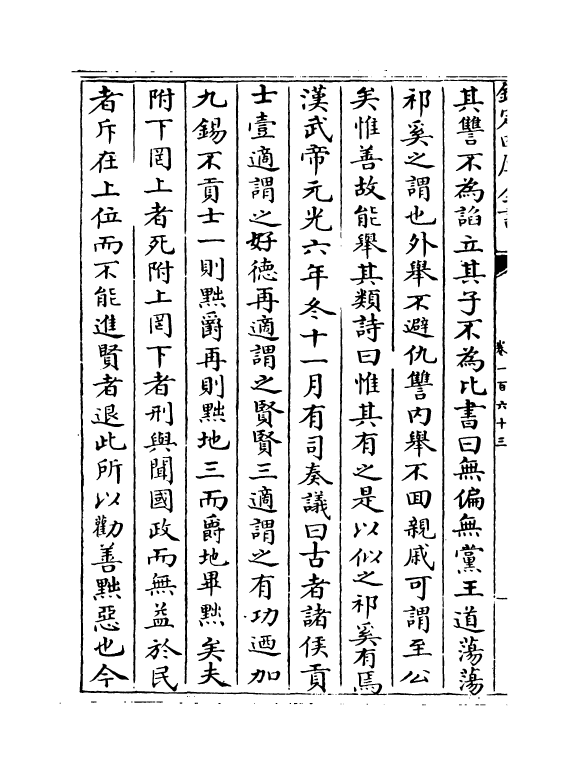 欽定四庫全書
卷一百六十三
其讐不為諂立其子不為比書曰無偏無黨王道蕩蕩
祁奚之謂也外舉不避仇讐内舉不回親戚可謂至公
矣惟善故能舉其類詩曰惟其有之是以似之祁奚有焉
漢武帝元光六年冬十一月有司奏議曰古者諸侯貢
士壹適謂之好德再適謂之賢賢三適謂之有功廼加
九錫不貢士一則黜爵再則黜地三而爵地畢黜矣夫
附下罔上者死附上罔下者刑與聞國政而無益於民
者斥在上位而不能進賢者退此所以勸善黜惡也今